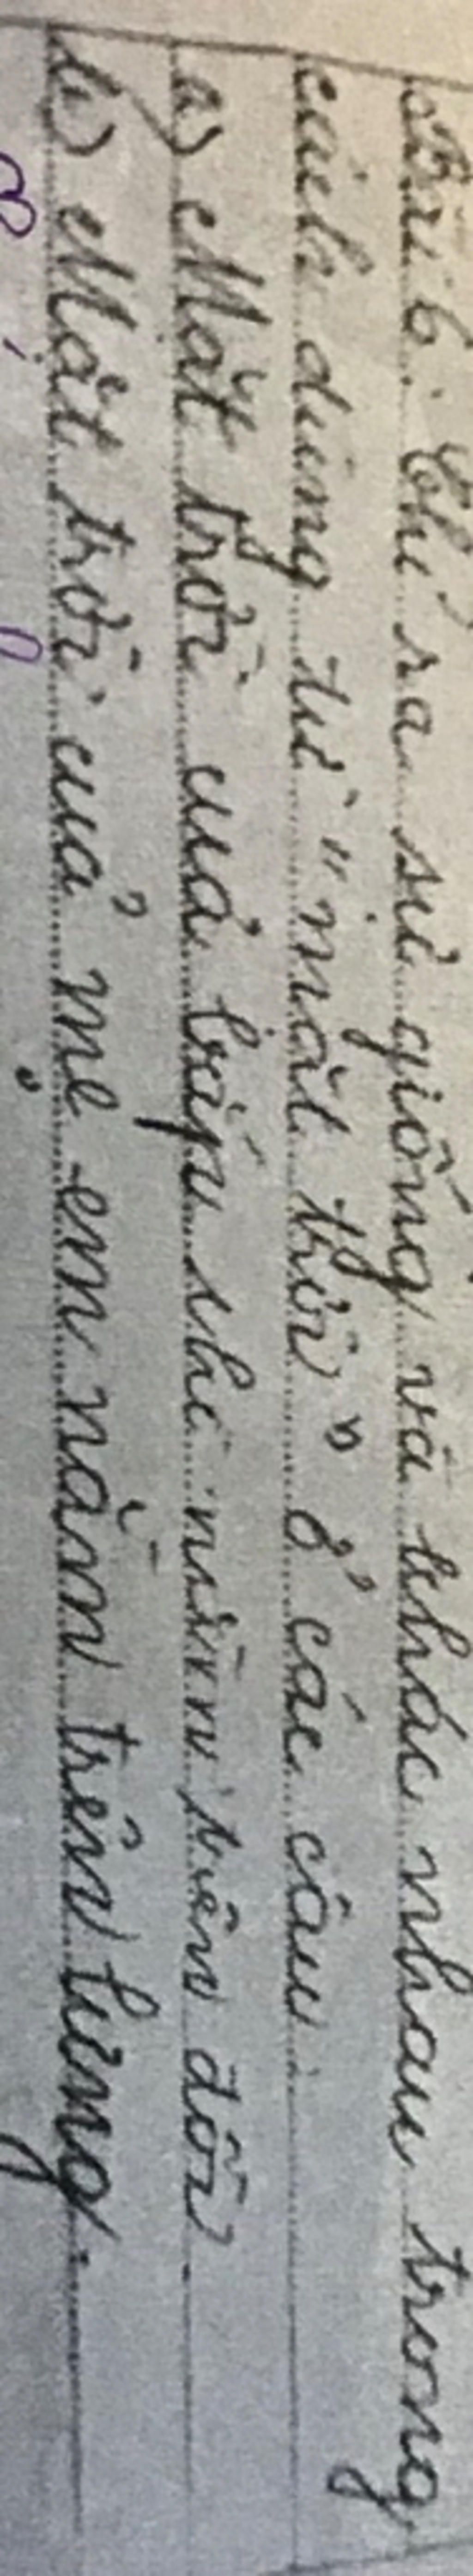 Bài 6: Chỉ ra sự giống và khác nhau trong
cách dùng từ "mặt trời" ở các câu
a) Mặt trời của bắp thì nằm trên đồi.
b) Mặt trời của mẹ em nằm trên lưng.